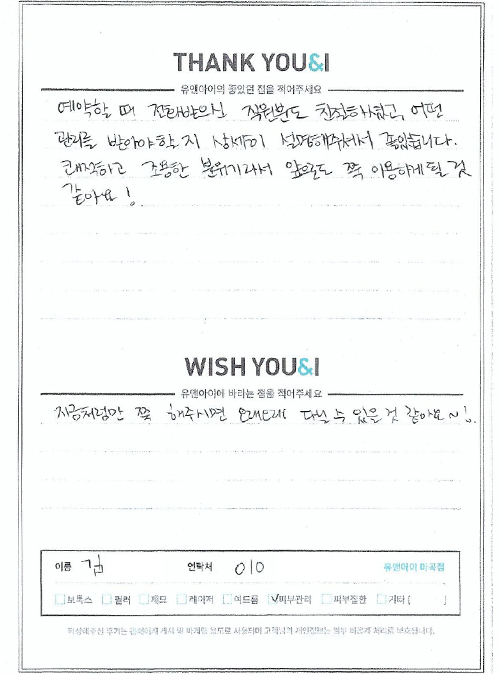 THANK YOU&I
유앤아이의 좋았던 점을 적어주세요
예약할 때 전화받으신 직원분도 친절하셨고, 어떤
관리를 받아야할지 상세히 설명해주셔서 좋았습니다.
쾌적하고 조용한 분위기라서 앞으로도 쭉 이용하게될 것
같아요!
WISH YOU&I
유앤아이에 바라는 점을 적어주세요
지금처럼만 쭉 해주시면 오래오래 다닐 수 있을 것 같아요~!
이름 김 연락처 010 유앤아이 마곡점
보톡스 필러 제모 레이저 여드름 ✓피부관리 피부질환 기타 [ ]
작성해주신 후기는 온라인에 게시 및 마케팅 용도로 사용되며 고객님의 개인정보는 보호됩니다.